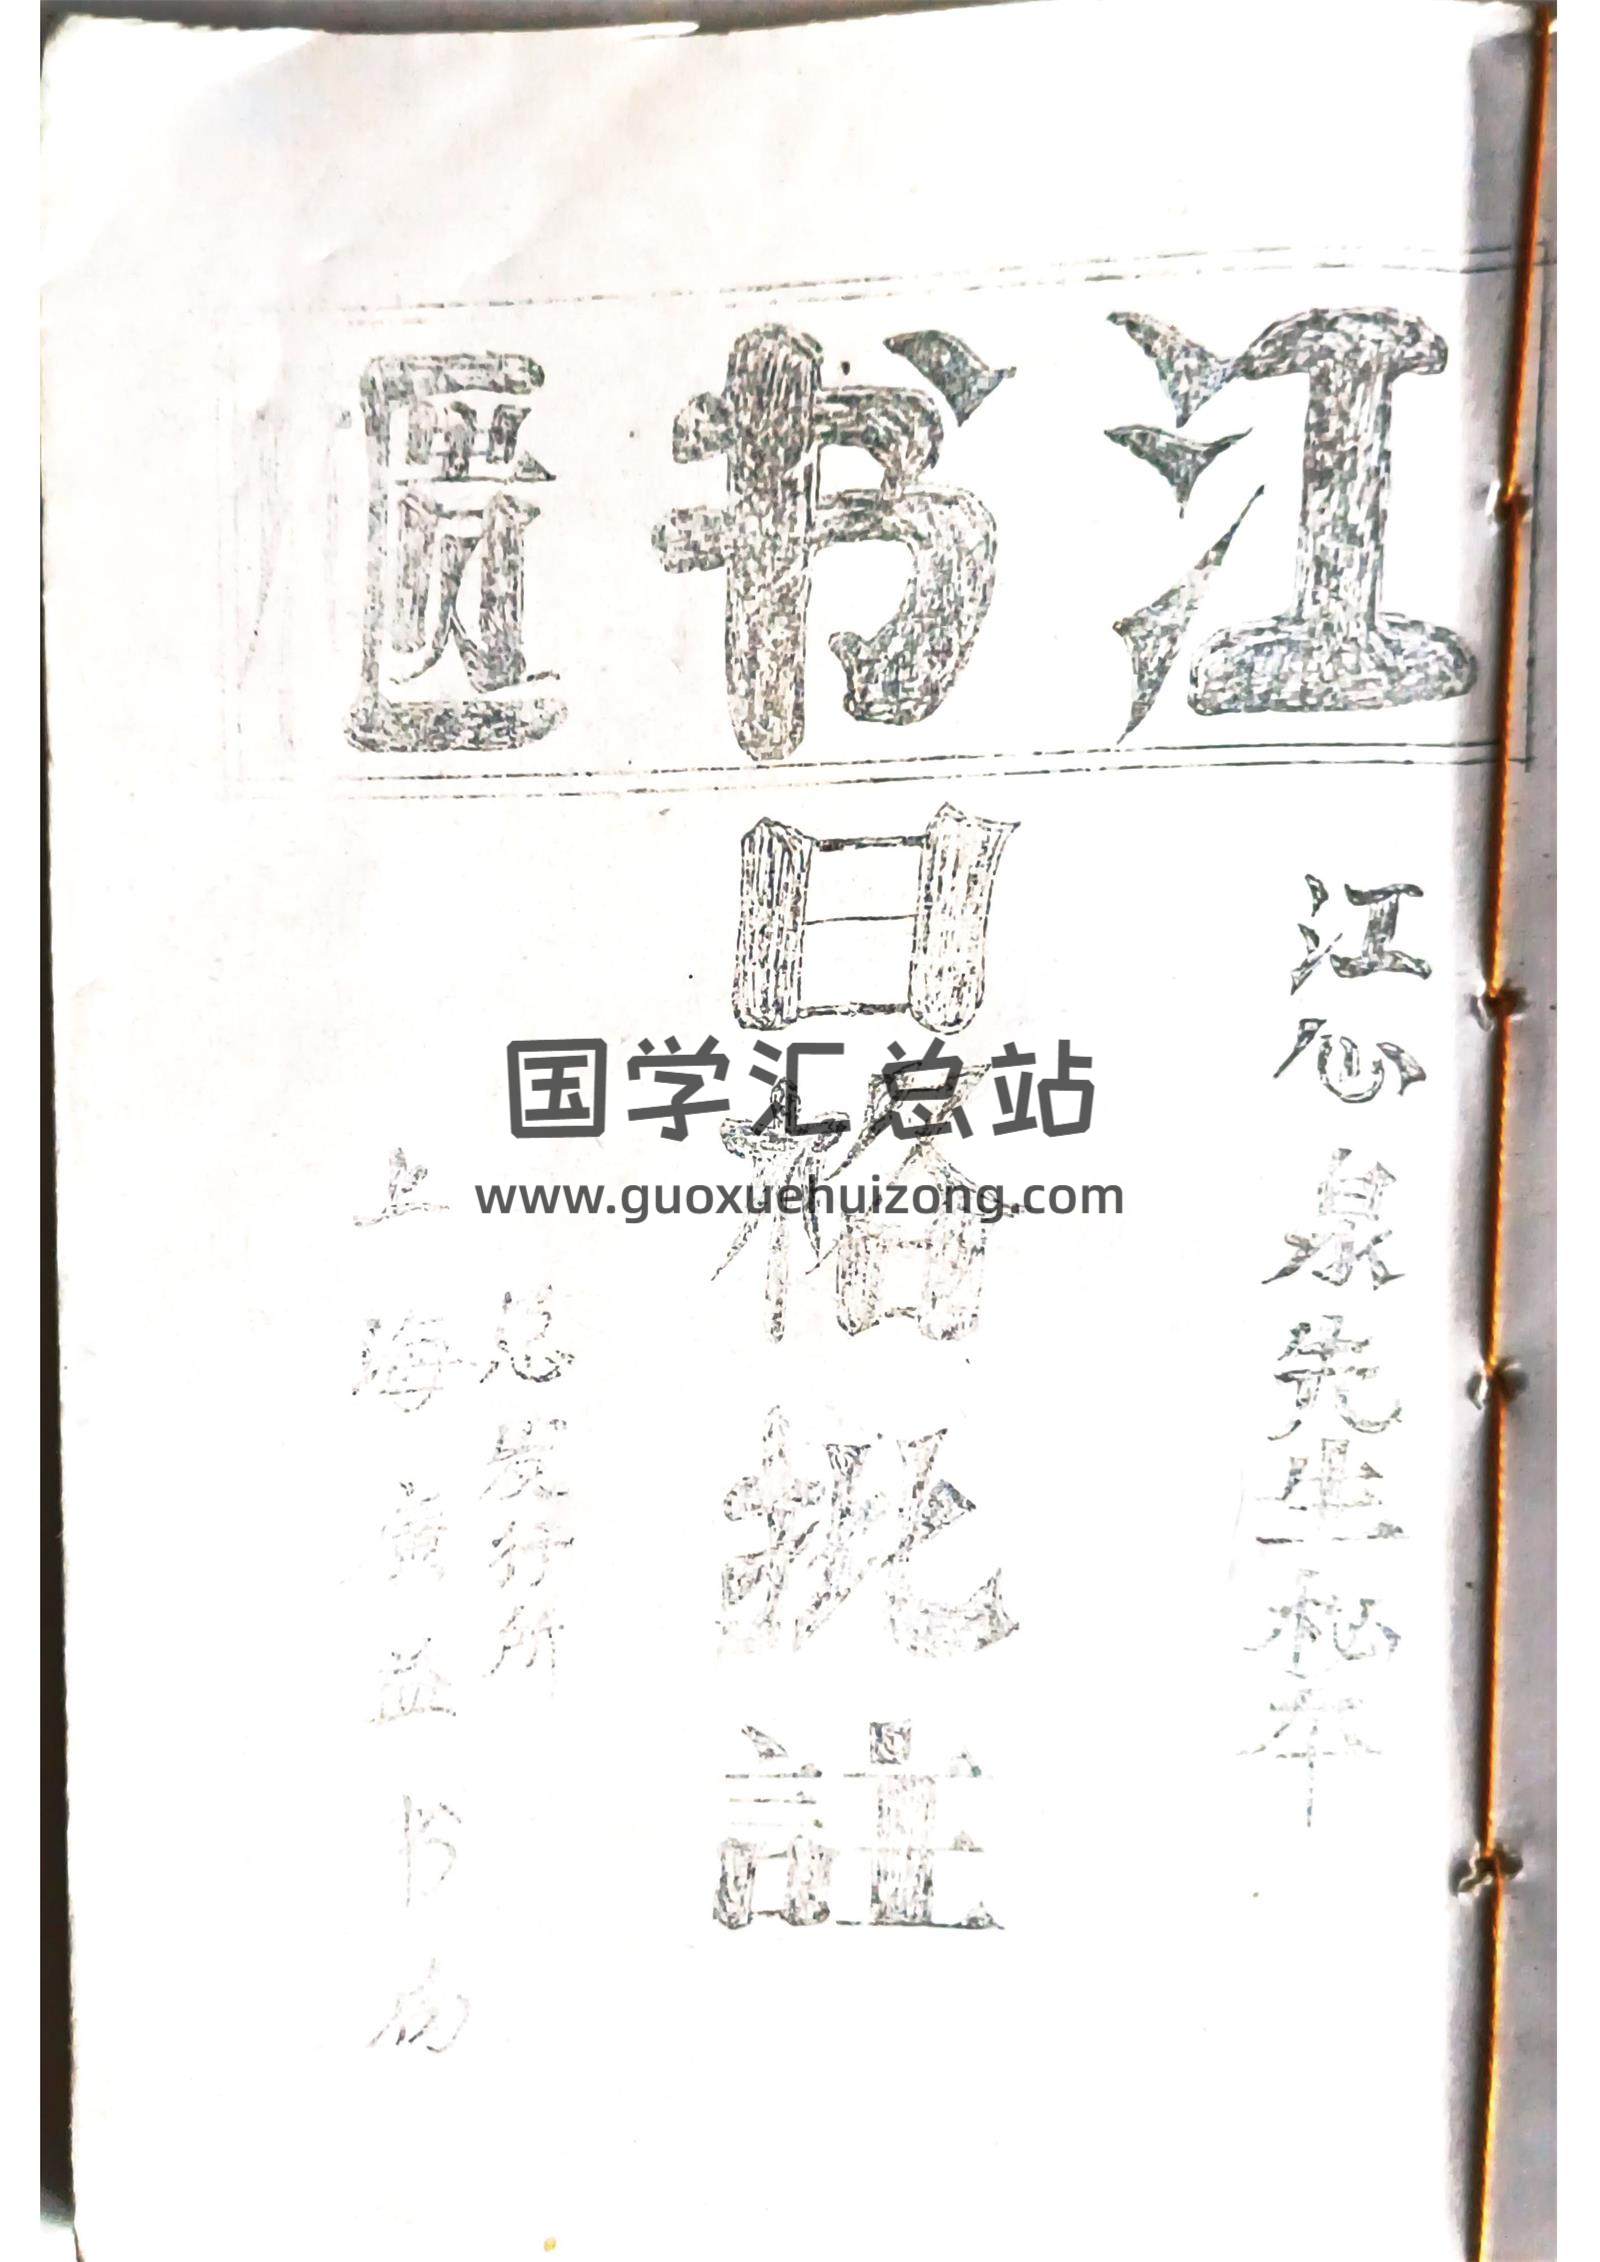 江书匮
江心泉先生秘本
日格批註
总发行所
上海廣益书局
国学汇总站
www.guoxuehuizong.com